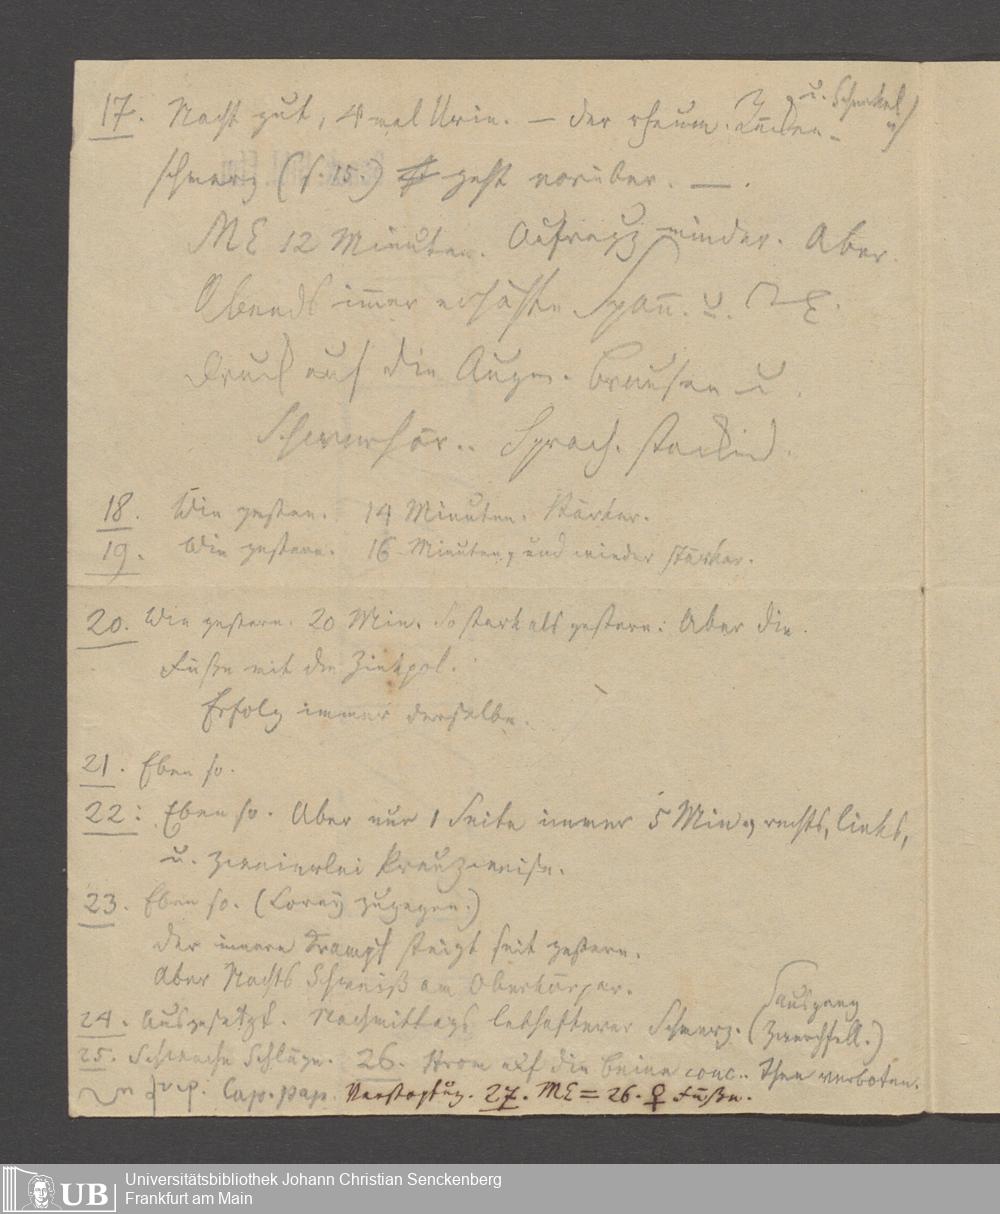 17. Nacht gut, 4 mal Urin. — der rheum. u. Schenkel
schmerz (s. 15.) geht vorüber. —.
ME 12 Minuten. Aufregg minder. Aber
Abends immer erhöhte Spann. u.
Druck auf die Augen. Brausen u.
Schwerhör.. Sprach. stockend.
18. Wie gestern. 14 Minuten. Stärker.
19. Wie gestern. 16 Minuten, und wieder stärker.
20. Wie gestern. 20 Min. So stark als gestern. Aber die
Füße mit dem Zinkpol.
Erfolg immer derselbe.
21. Eben so.
22. Eben so. Aber nur 1 Seite immer 5 Min, rechts, links,
u. zweierlei Kreuzweise.
23. Eben so. (Lorey zugegen.)
Der innere Krampf steigt seit gestern.
Aber Nachts Schweiß am Oberkörper.
24. Ausgesetzt. Nachmittags lebhafterer Schmerz. (Zwerchfell.)
25. Schwache Schläge. 26. Strom auf die Beine conc.. Thee verboten.
Cap. pap. Verstopfung. 27. ME = 26. ♀ Füße.
Universitätsbibliothek Johann Christian Senckenberg
Frankfurt am Main
UB